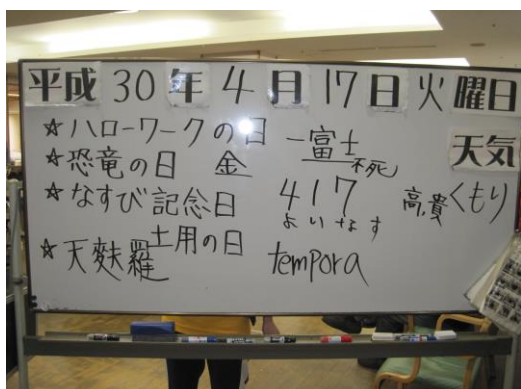 平成30年4月17日火曜日
☆ハローワークの日 一富士
不死
天気
☆恐竜の日 金
☆なすび記念日 417 高貴 くもり
よいなす
土用の日
☆天麩羅 tempora